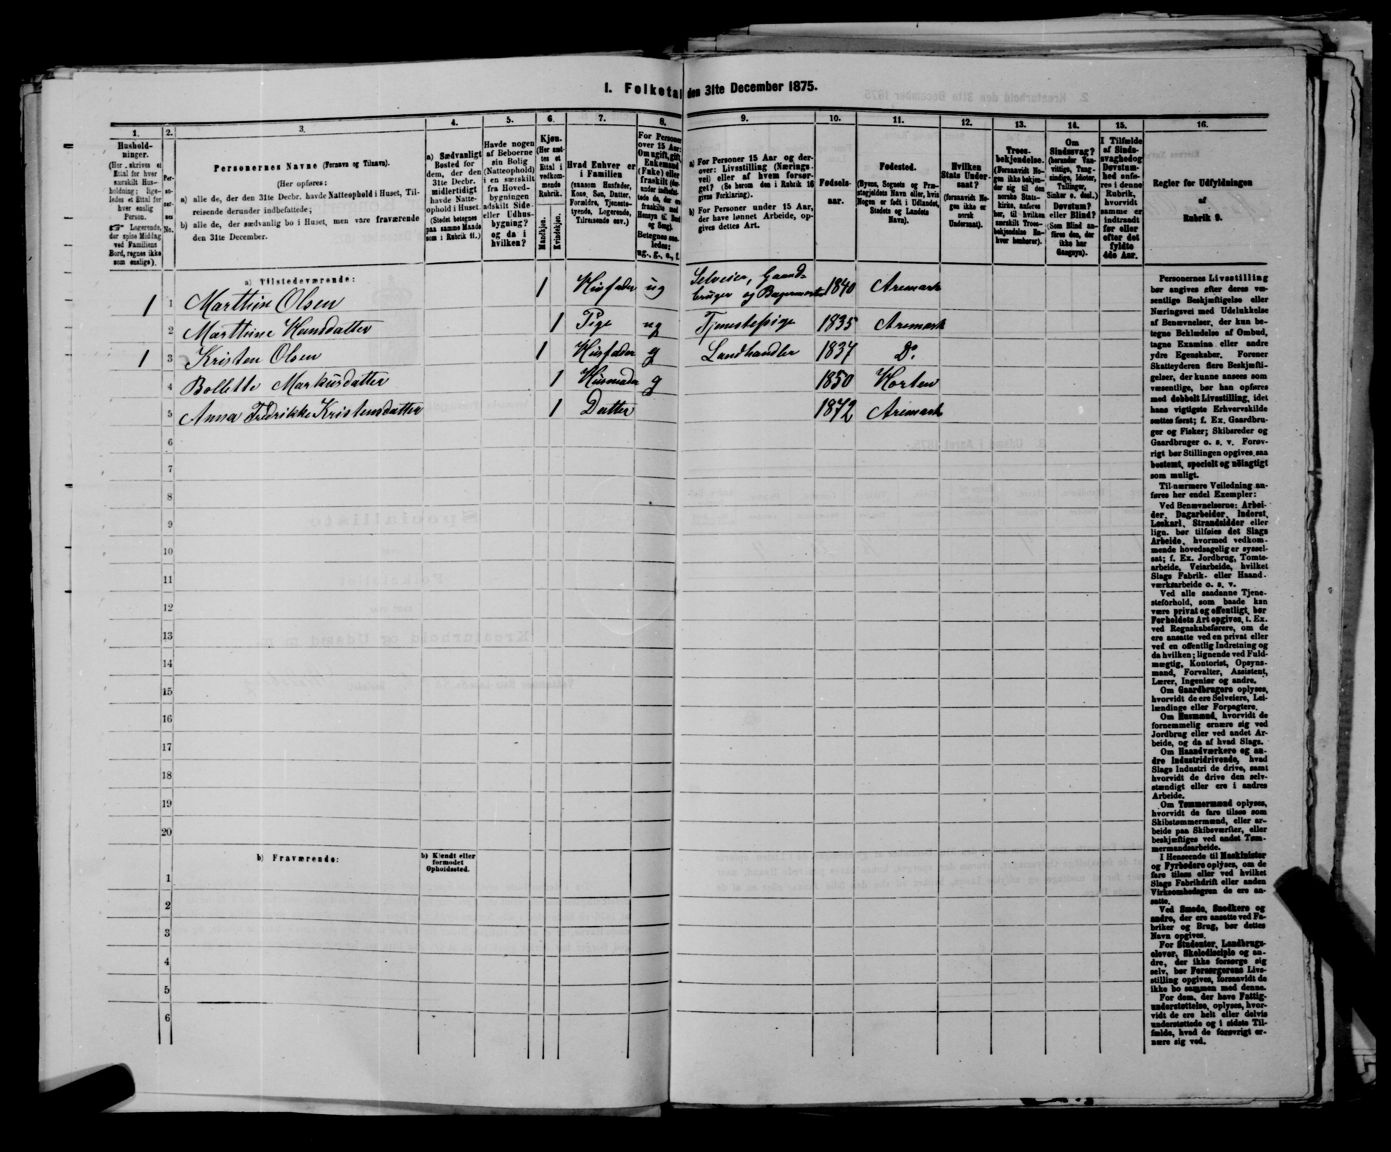 I. Folketal den 31te December 1875.
1.
2.
3.
4.
5.
6.
7.
8.
9.
10.
11.
12.
13.
14.
15.
16.
Hushold-
ninger.
(Her skrives et
Ettal for hver
særskilt Hus-
holdning; lige-
ledes et Ettal for
hver enslig
Person.
☞ Logerende,
der spise Middag
ved Familiens
Bord, regnes ikke
som enslige).
Per-
so-
ner-
nes
No.
Personernes Navne (Fornavn og Tilnavn).
(Her opføres:
a) alle de, der den 31te Decbr. havde Natteophold i Huset, Til-
reisende derunder indbefattede;
b) alle de, der sædvanlig bo i Huset, men vare fraværende
den 31te December.
a) Sædvanligt
Bosted for
dem, der den
31te Decbr.
midlertidigt
havde Natte-
ophold i Huset.
(Stedet betegnes
paa samme Maade
som i Rubrik 11.)
Havde nogen
af Beboerne
sin Bolig
(Natteophold)
i en særskilt
fra Hoved-
bygningen
adskilt Side-
eller Udhus-
bygning?
og da i
hvilken?
Kjøn.
(Her sæt-
tes et
Ettal i
vedkom-
mende
Rubrik.
Mandkjøn.
Kvindekjøn.
Hvad Enhver er
i Familien
(saasom Husfader,
Kone, Søn, Datter,
Forældre, Tjeneste-
tyende, Logerende,
Tilreisende osv.)
For Personer
over 15 Aar:
Om ugift, gift,
Enkemand
(Enke) eller
fraskilt
Betegnes saa-
ledes:
ug., g., e., f.
a) For Personer 15 Aar og der-
over: Livsstilling (Nærings-
vei) eller af hvem forsør-
get? (Se herom den i Rubrik 16
givne Forklaring).
b) For Personer under 15 Aar,
der have lønnet Arbeide, op-
gives dettes Art.
Fødsels-
aar.
Fødested.
(Byens, Sognets og Præ-
stegjældets Navn eller, hvis
Nogen er født i Udlandet,
Stedets og Landets
Navn).
Hvilken
Stats Under-
saat?
(forsaavidt No-
gen ikke er
norsk
Undersaat).
Troes-
bekjendelse.
(Forsaavidt No-
gen ikke bekjen-
der sig til den
norske Stats-
kirke, anføres
her, til hvilken
særskilt Troes-
bekjendelse En-
hver henhører).
Om
Sindssvag?
(herunder Van-
vittige, Tung-
sindige, Idioter,
Tullinger,
Sinker o. desl.)
Døvstum?
eller Blind?
(Som Blind an-
føres den, der
ikke har
Gangsyn).
I Tilfælde
af Sinds-
svaghed og
Døvstum-
hed anfø-
res i denne
Rubrik,
hvorvidt
samme er
indtraadt
før eller
efter det
fyldte
4de Aar.
Regler for Udfyldningen
af
Rubrik 9.
a) Tilstedeværende:
1 1 Marthin Olsen 1 Husfader ug Selveier, Gaard- bruger og 1840 Aremark
2 Marthine Hansdatter 1 Pige ug Tjenestepige 1835 Aremark
1 3 Kristen Olsen 1 Husfader g Landhandler 1837 Do.
4 Bollette Markusdatter 1 Husmoder g 1850 Horten
5 Anna Fredrikke Kristensdatter 1 Datter 1872 Aremark
6
7
8
9
10
11
12
13
14
15
16
17
18
19
20
b) Fraværende:
b) Kjendt eller
formodet
Opholdssted.
1
2
3
4
5
6
Personernes Livsstilling
bør angives efter deres væ-
sentlige Beskjæftigelse eller
Næringsvei med Udelukkelse
af Benævnelser, der kun be-
tegne Beklædelse af Ombud,
tagne Examina eller andre
ydre Egenskaber. Forener
Skatteyderen flere Beskjæfti-
gelser, der kunne ansees som
væsentlige, bør han opføres
med dobbelt Livsstilling, idet
hans vigtigste Erhvervskilde
sættes først; f. Ex. Gaardbru-
ger og Fisker; Skibsreder og
Gaardbruger o. s. v. Forøv-
rigt bør Stillingen opgives saa
bestemt, specielt og nøiagtigt
som muligt.
Til nærmere Veiledning an-
føres her endel Exempler:
Ved Benævnelserne: Arbei-
der, Dagarbeider, Inderst,
Løskarl, Strandsidder eller
lign. bør tilføies det Slags
Arbeide, hvormed vedkom-
mende hovedsagelig er syssel-
sat; f. Ex. Jordbrug, Tomte-
arbeide, Veiarbeide, hvilket
Slags Fabrik- eller Haand-
værksarbeide o. s. v.
Ved alle saadanne Tjene-
steforhold, som baade kan
være privat og offentligt, bør
Forholdets Art opgives, f. Ex.
ved Regnskabsførere, om de
ere ansatte ved en privat eller
ved en offentlig Indretning og
da hvilken; lignende ved Fuld-
mægtig, Kontorist, Opsyns-
mand, Forvalter, Assistent,
Lærer, Ingeniør og andre.
Om Gaardbrugere oplyses,
hvorvidt de ere Selveiere, Lei-
lændinge eller Forpagtere.
Om Husmænd, hvorvidt de
fornemmelig ernære sig ved
Jordbrug eller ved andet Ar-
beide, og da af hvad Slags.
Om Haandværkere og an-
dre Industridrivende, hvad
Slags Industri de drive, samt
hvorvidt de drive den selv-
stændigt eller ere i andres
Arbeide.
Om Tømmermænd oplyses,
hvorvidt de fare tilsøs som
Skibstømmermænd, eller ar-
beide paa Skibsværfter, eller
beskjæftiges ved andet Tøm-
mermandsarbeide.
I Henseende til Maskinister
og Fyrbødere oplyses, om de
fare tilsøs eller ved hvilket
Slags Fabrikdrift eller anden
Virksomhedsgren de ere an-
satte.
Ved Smede, Snedkere og
andre, der ere ansatte ved Fa-
briker og Brug, bør dettes
Navn opgives.
For Studenter, Landbrugs-
elever, Skoledisciple og an-
dre, der ikke forsørge sig
selv, bør Forsørgerens Livs-
stilling opgives, forsaavidt de
ikke bo sammen med denne.
For dem, der have Fattig-
understøttelse, oplyses, hvor-
vidt de ere helt eller delvis
understøttede og i sidste Til-
fælde, hvad de forøvrigt er-
nære sig ved.